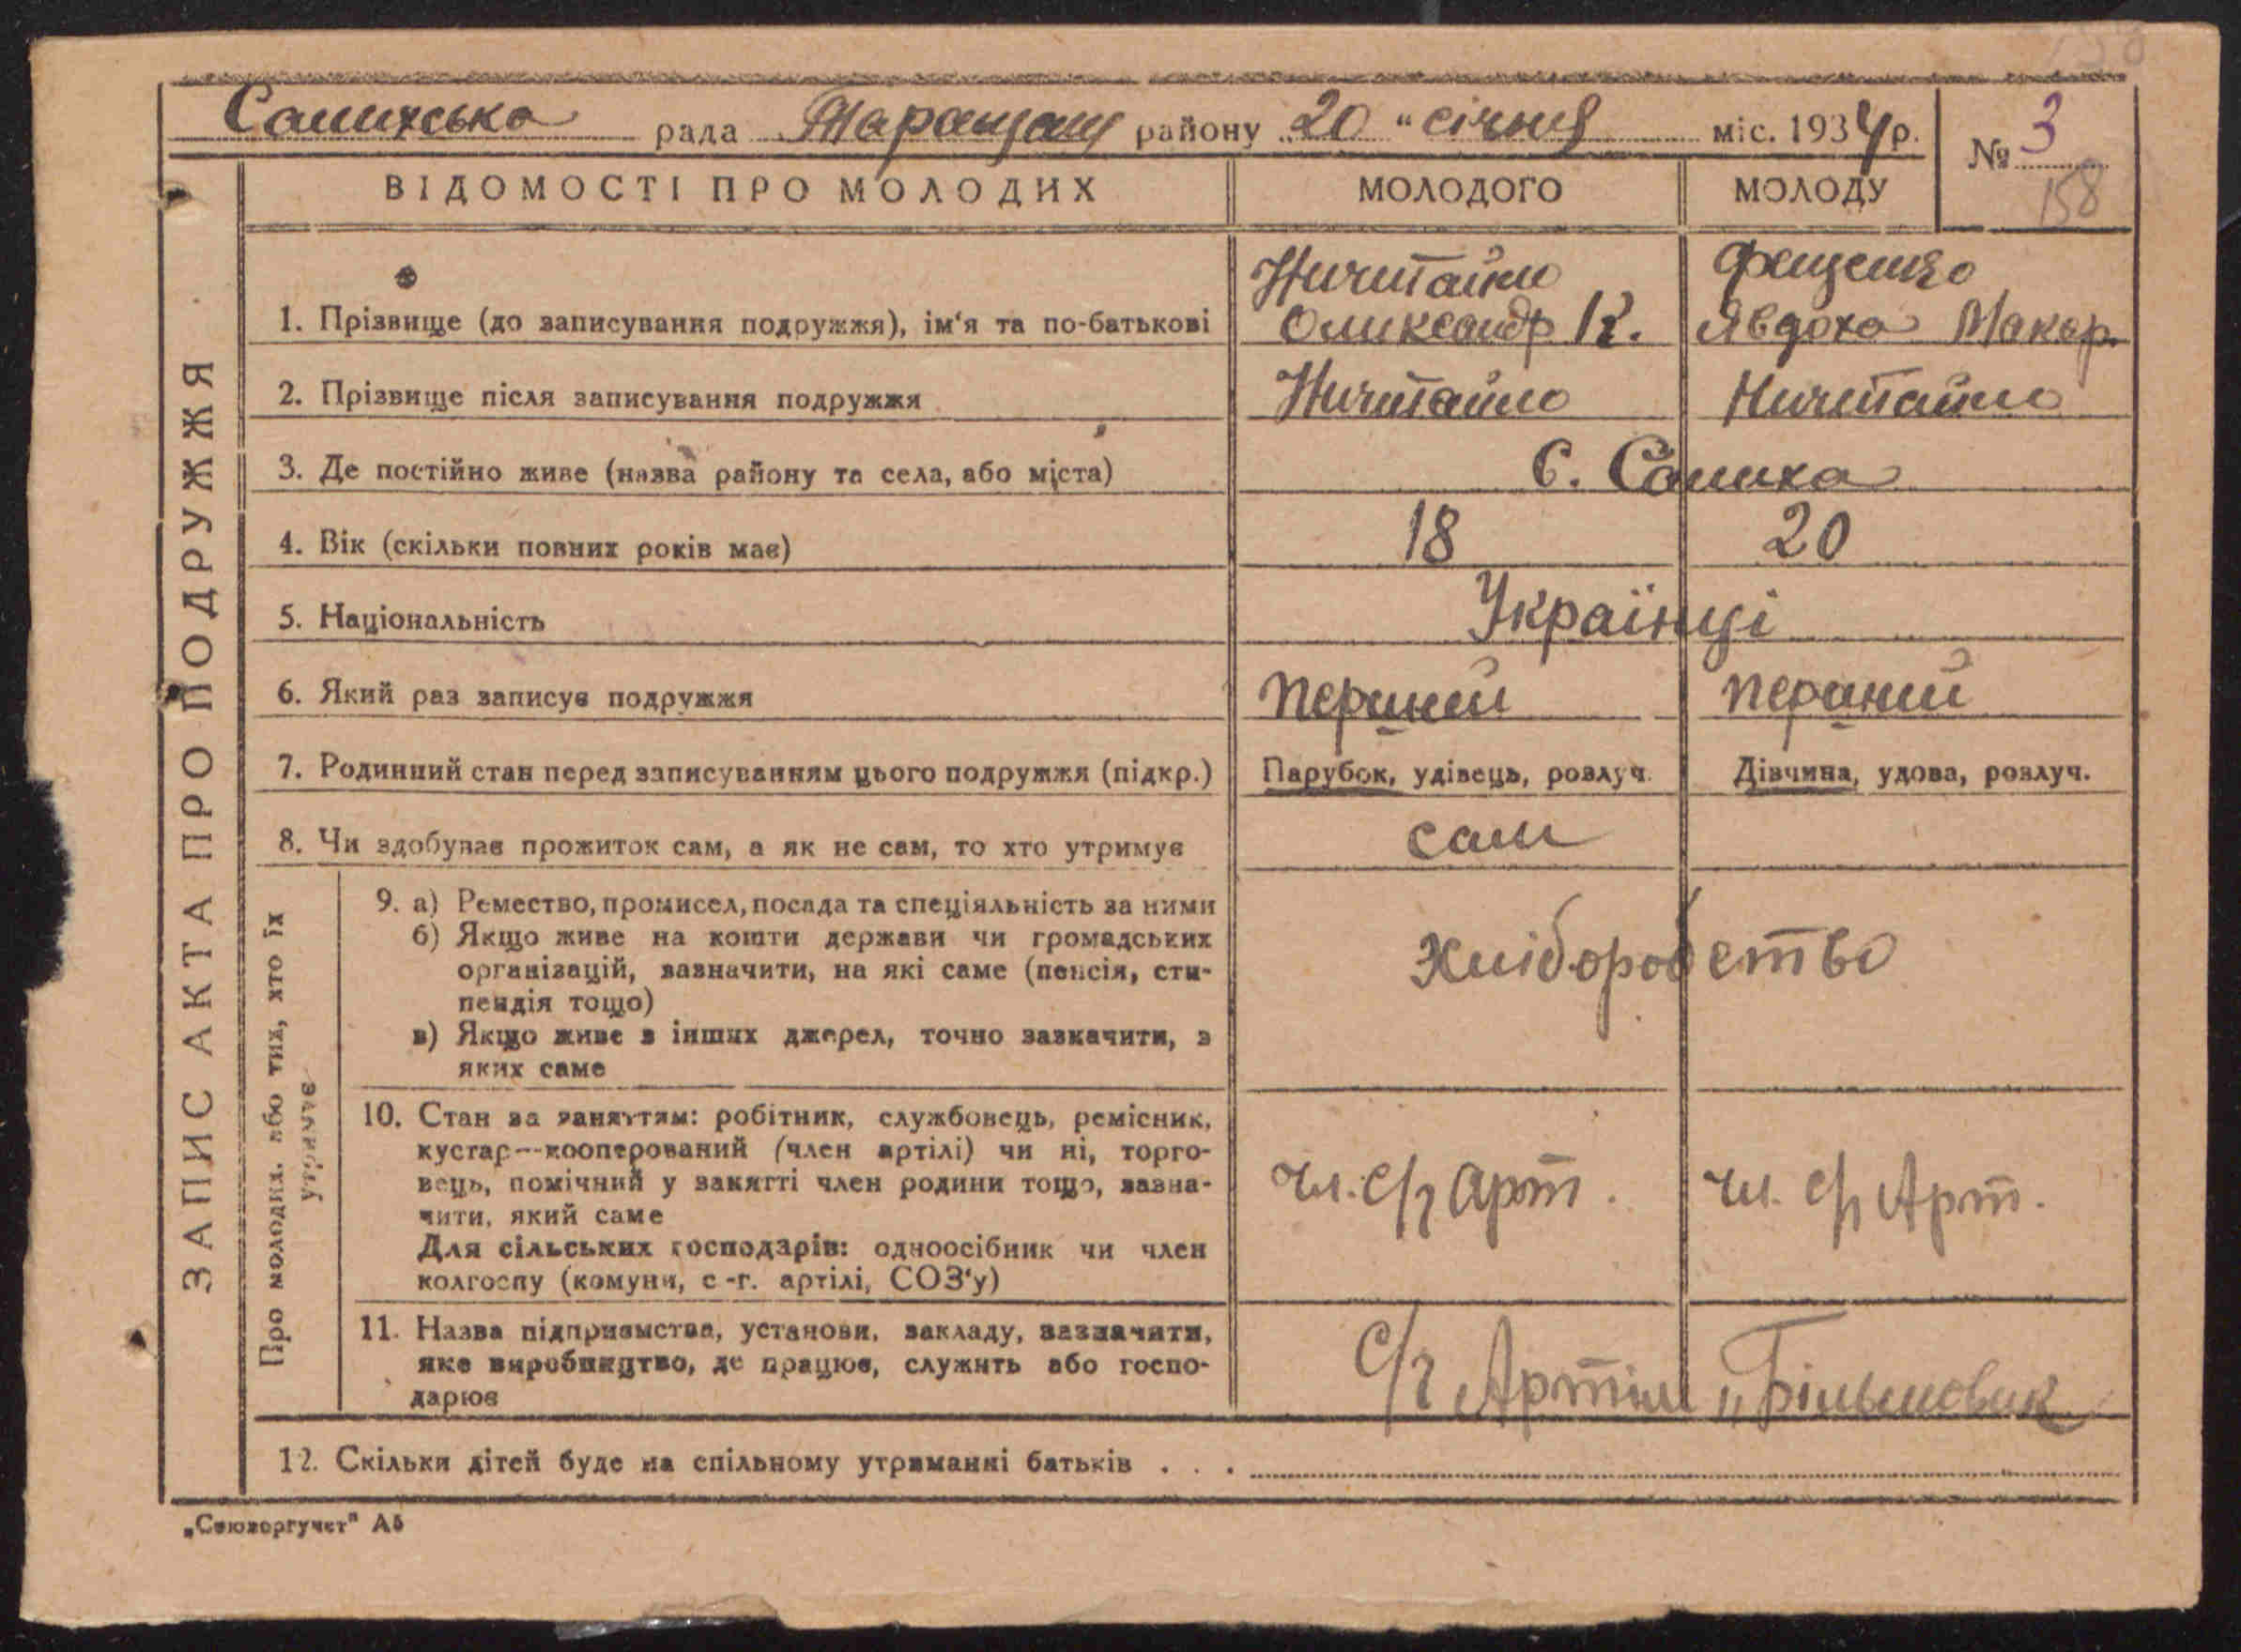 Салихська рада Таращан району „20“ січня міс. 1934 р.
№ 3
158
ВІДОМОСТІ ПРО МОЛОДИХ МОЛОДОГО МОЛОДУ
ЗАПИС АКТА ПРО ПОДРУЖЖЯ
1. Прізвище (до записування подружжя), ім‘я та по-батькові Ничитайло Олександр К. Фещенко Явдоха Макар.
2. Прізвище після записування подружжя Ничитайло Ничитайло
3. Де постійно живе (назва району та села, або міста) С. Салиха
4. Вік (скільки повних років має) 18 20
5. Національність Українці
6. Який раз записує подружжя перший перший
7. Родинний стан перед записуванням цього подружжя (підкр.) Парубок, удівець, розлуч. Дівчина, удова, розлуч.
8. Чи здобуває прожиток сам, а як не сам, то хто утримує сам
Про молодих, або тих, хто їх
утримує
9. а) Ремество, промисел, посада та спеціяльність за ними
б) Якщо живе на кошти держави чи громадських
організацій, зазначити, на які саме (пенсія, сти-
пендія тощо)
в) Якщо живе з інших джерел, точно зазначити, з
яких саме
хліборобство
10. Стан за заняттям: робітник, службовець, ремісник,
кустар—кооперований (член артілі) чи ні, торго-
вець, помічний у занятті член родини тощо, зазна-
чити, який саме
Для сільських господарів: одноосібник чи член
колгоспу (комуни, с.-г. артілі, СОЗ‘у)
чл. с/г арт. чл. с/г Арт.
11. Назва підприємства, установи, закладу, зазначити,
яке виробництво, де працює, служить або госпо-
дарює
С/г Артіль „Більшовик
12. Скільки дітей буде на спільному утриманні батьків . . .
„Союзоргучет" А5